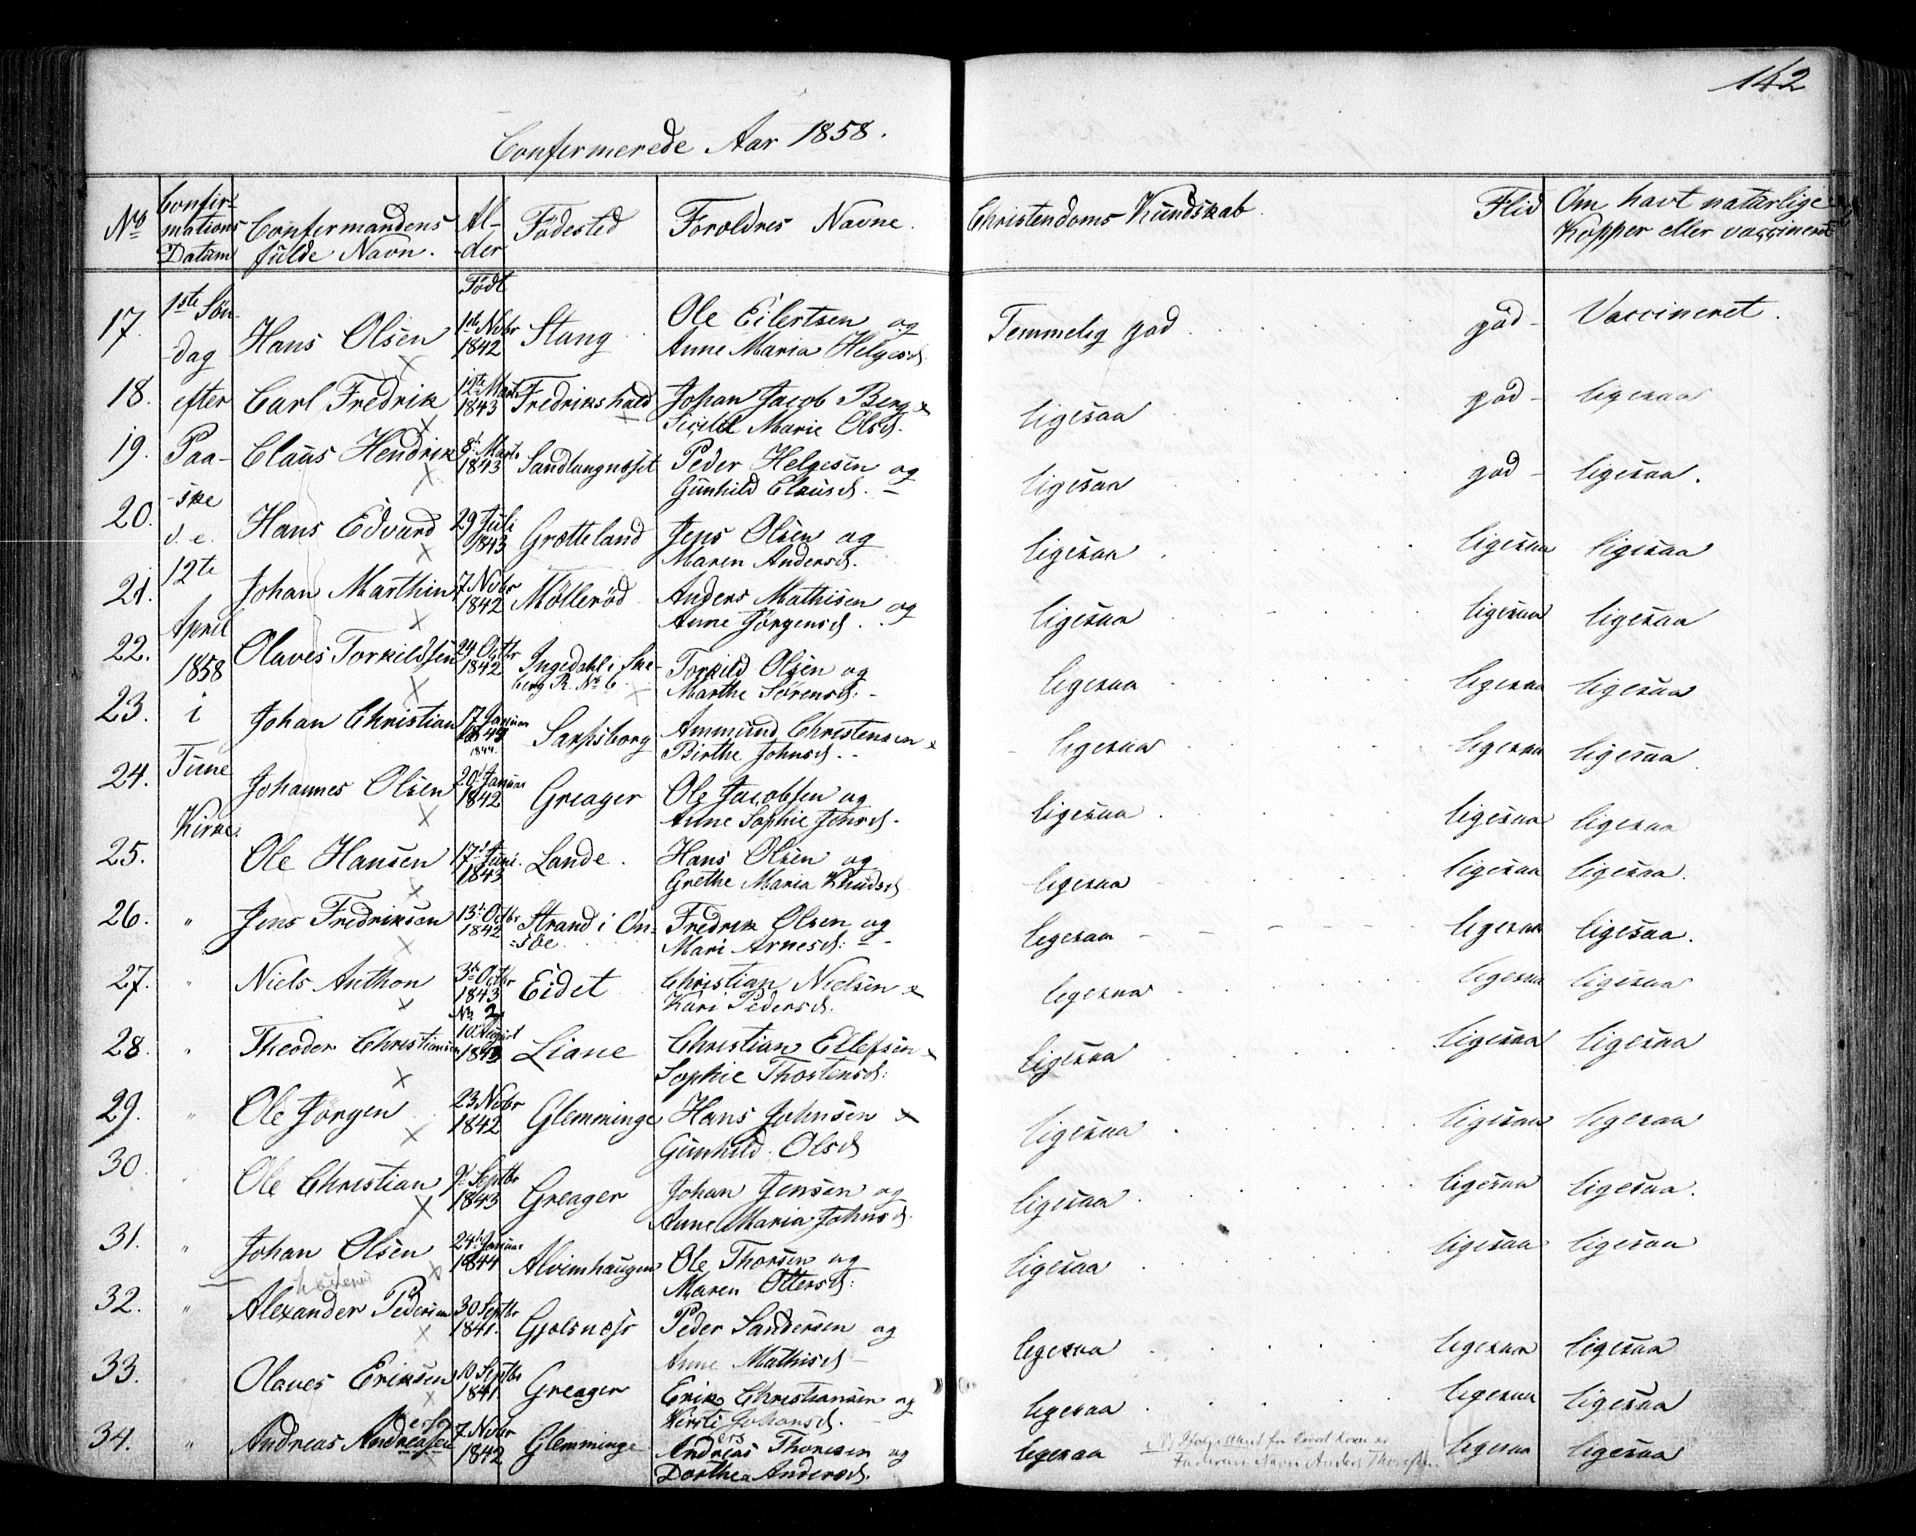 142
Confermerede Aar 1858.
No Confir-mations Datum Confermandens fulde Navn. Al-der Födested Foroldres Navne. Christendoms Kundskab. Flid Om havt naturlige Kopper eller vaccineret
Födt
17. 1ste Sön- Hans Olsen 1ste Nobr 1842 Stang Ole Eilertsen og Temmelig god god Vaccineret.
-dag Anne Maria Helgesd.
18. efter Carl Fredrik 12te Marts 1843 Fredrikshald Johan Jacob Berg & ligesaa god ligesaa
Marie Olsd.
19. Paa- Claus Hendrik 8de Marts 1843 Sandtangnæset Peder Helgesen og ligesaa god ligesaa.
-ske Gunhild Clausd.
20. d. e. Hans Edvard 29 Juli 1843 Grætteland Jens Olsen og ligesaa ligesaa ligesaa
12te Maren Andersd.
21. Johan Marthin 7 Nobr 1842 Mölleröd Anders Mathisen og ligesaa ligesaa ligesaa
April Anne Jörgensd.
22. 1858 Olaves Torkildssen 24 Octbr 1842 Ingedahl i Ske- Torkild Olsen og ligesaa ligesaa ligesaa
berg R. No 6. Marthe Sörensd.
23. i Johan Christian 17 Januar 1843 Sarpsborg Ammund Christensen & ligesaa ligesaa ligesaa
1844. Birthe Johnsd.
24. Tune Johannes Olsen 20 Januar 1842 Greager Ole Jacobsen og ligesaa ligesaa ligesaa
Kirke. Anne Sophie Jensd.
25. Ole Hansen 17 Juni 1843 Lande. Hans Olsen og ligesaa ligesaa ligesaa.
Grethe Maria Knudsd
26. " Jens Fredriksen 13 Octbr 1842 Strand i On- Fredrik Olsen og ligesaa ligesaa ligesaa.
-söe Mari Arnesd:
27. " Niels Anthon 3de Octbr 1843 Eidet Christian Nielsen & ligesaa ligesaa ligesaa
Kari Pedersd.
28. " Theodor Christiansen 10 August 1843 Liane Christian Ellefsen & ligesaa ligesaa ligesaa
Sophie Thostensd:
29. " Ole Jörgen 23 Nobr 1842 Glemminge Hans Johnsen & ligesaa ligesaa ligesaa
Gunhild Olsd
30. " Ole Christian 9 Septbr 1843 Greager Johan Jensen og ligesaa ligesaa ligesaa.
Anne Maria Johnsd.
31. " Johan Olsen 24 Januar 1844 Alvimhaugen Ole Thorsen og ligesaa ligesaa ligesaa
Maren Ottersd:
32. " Alexander Pedersen 30 Septbr 1841. Gjelsnæss Peder Sandersen og ligesaa ligesaa ligesaa
Anne Mathisd
33. " Olaves Eriksen 10 Septbr 1841. Greager Erik Christiansen og ligesaa ligesaa ligesaa
Kersti Johansd.
34. " Andreas Andreasen 7 Nobr 1842 Glemminge Andreas Thoresen og ligesaa ligesaa ligesaa
ers
Dorthea Andersd.
Faderens Navn Anders Thoresen